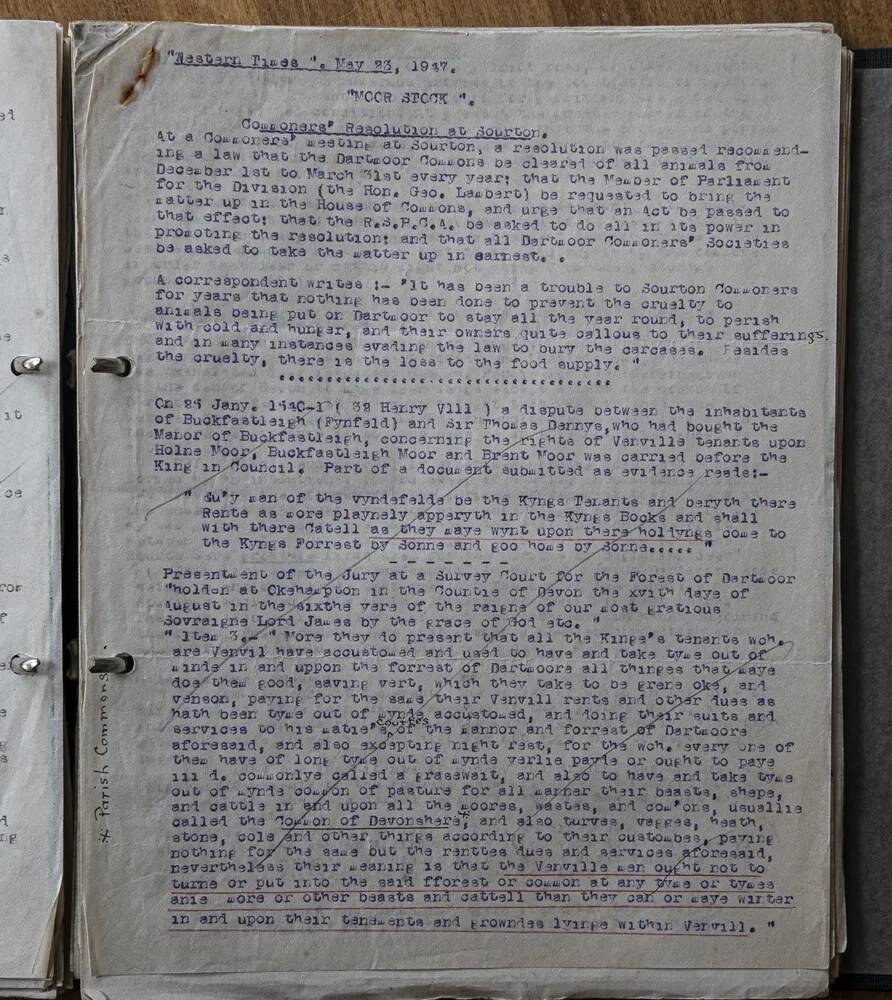 "Western Times ". May 23, 1947.
"MOOR STOCK ".
Commoners' Resolution at Sourton.
At a Commoners' meeting at Sourton, a resolution was passed recommend-
ing a law that the Dartmoor Commons be cleared of all animals from
December 1st to March 31st every year; that the Member of Parliament
for the Division (the Hon. Geo. Lambert) be requested to bring the
matter up in the House of Commons, and urge that an Act be passed to
that effect; that the R.S.P.C.A. be asked to do all in its power in
promoting the resolution; and that all Dartmoor Commoners' Societies
be asked to take the matter up in earnest. .
A correspondent writes :- "It has been a trouble to Sourton Commoners
for years that nothing has been done to prevent the cruelty to
animals being put on Dartmoor to stay all the year round, to perish
with cold and hunger, and their owners quite callous to their sufferings.
and in many instances evading the law to bury the carcases. Besides
the cruelty, there is the loss to the food supply. "
On 25 Jany. 1540-1 ( 32 Henry Vlll ) a dispute between the inhabitants
of Buckfastleigh (Fynfeld) and Sir Thomas Dennys,who had bought the
Manor of Buckfastleigh, concerning the rights of Venville tenants upon
Holne Moor, Buckfastleigh Moor and Brent Moor was carried before the
King in Council. Part of a document submitted as evidence reads:-
" Eu'y man of the vyndefelde be the Kyngs Tenants and beryth there
Rente as more playnely apperyth in the Kyngs Books and shall
with there Catell as they maye wynt upon there holdyngs come to
the Kyngs Forrest by Sonne and goo home by Sonne..... "
Presentment of the Jury at a Survey Court for the Forest of Dartmoor
"holden at Okehampton in the Countie of Devon the xvith daye of
August in the sixthe yere of the raigne of our most gratious
Sovraigne Lord James by the grace of God etc. "
" Item 3.- " More they do present that all the Kinge's tenants wch.
are Venvil have accustomed and used to have and take tyme out of
minde in and uppon the forrest of Dartmoore all thinges that maye
doe them good, saving vert, which they take to be grene oke, and
venson, paying for the same their Venvill rents and other dues as
hath been tyme out of mynde accustomed, and doing their suits and
services to his matie's courtes of the mannor and forrest of Dartmoore
aforesaid, and also excepting night rest, for the wch. every one of
them have of long tyme out of mynde yerlie payde or ought to paye
iii d. commonlye called a grasewait, and also to have and take tyme
out of mynde common of pasture for all manner their beasts, shepe,
and cattle in and upon all the moores, wastes, and com'ons, usuallie
called the Common of Devonshere*, and also turves, vagges, heath,
stone, cole and other things according to their custombes, paying
nothing for the same but the renttes dues and services aforesaid,
nevertheless their meaning is that the Venville men ought not to
turne or put into the said fforest or common at any tyme or tymes
anie more or other beasts and cattell than they can or maye winter
in and upon their tenements and growndes lyinge within Venvill. "
* Parish Commons.